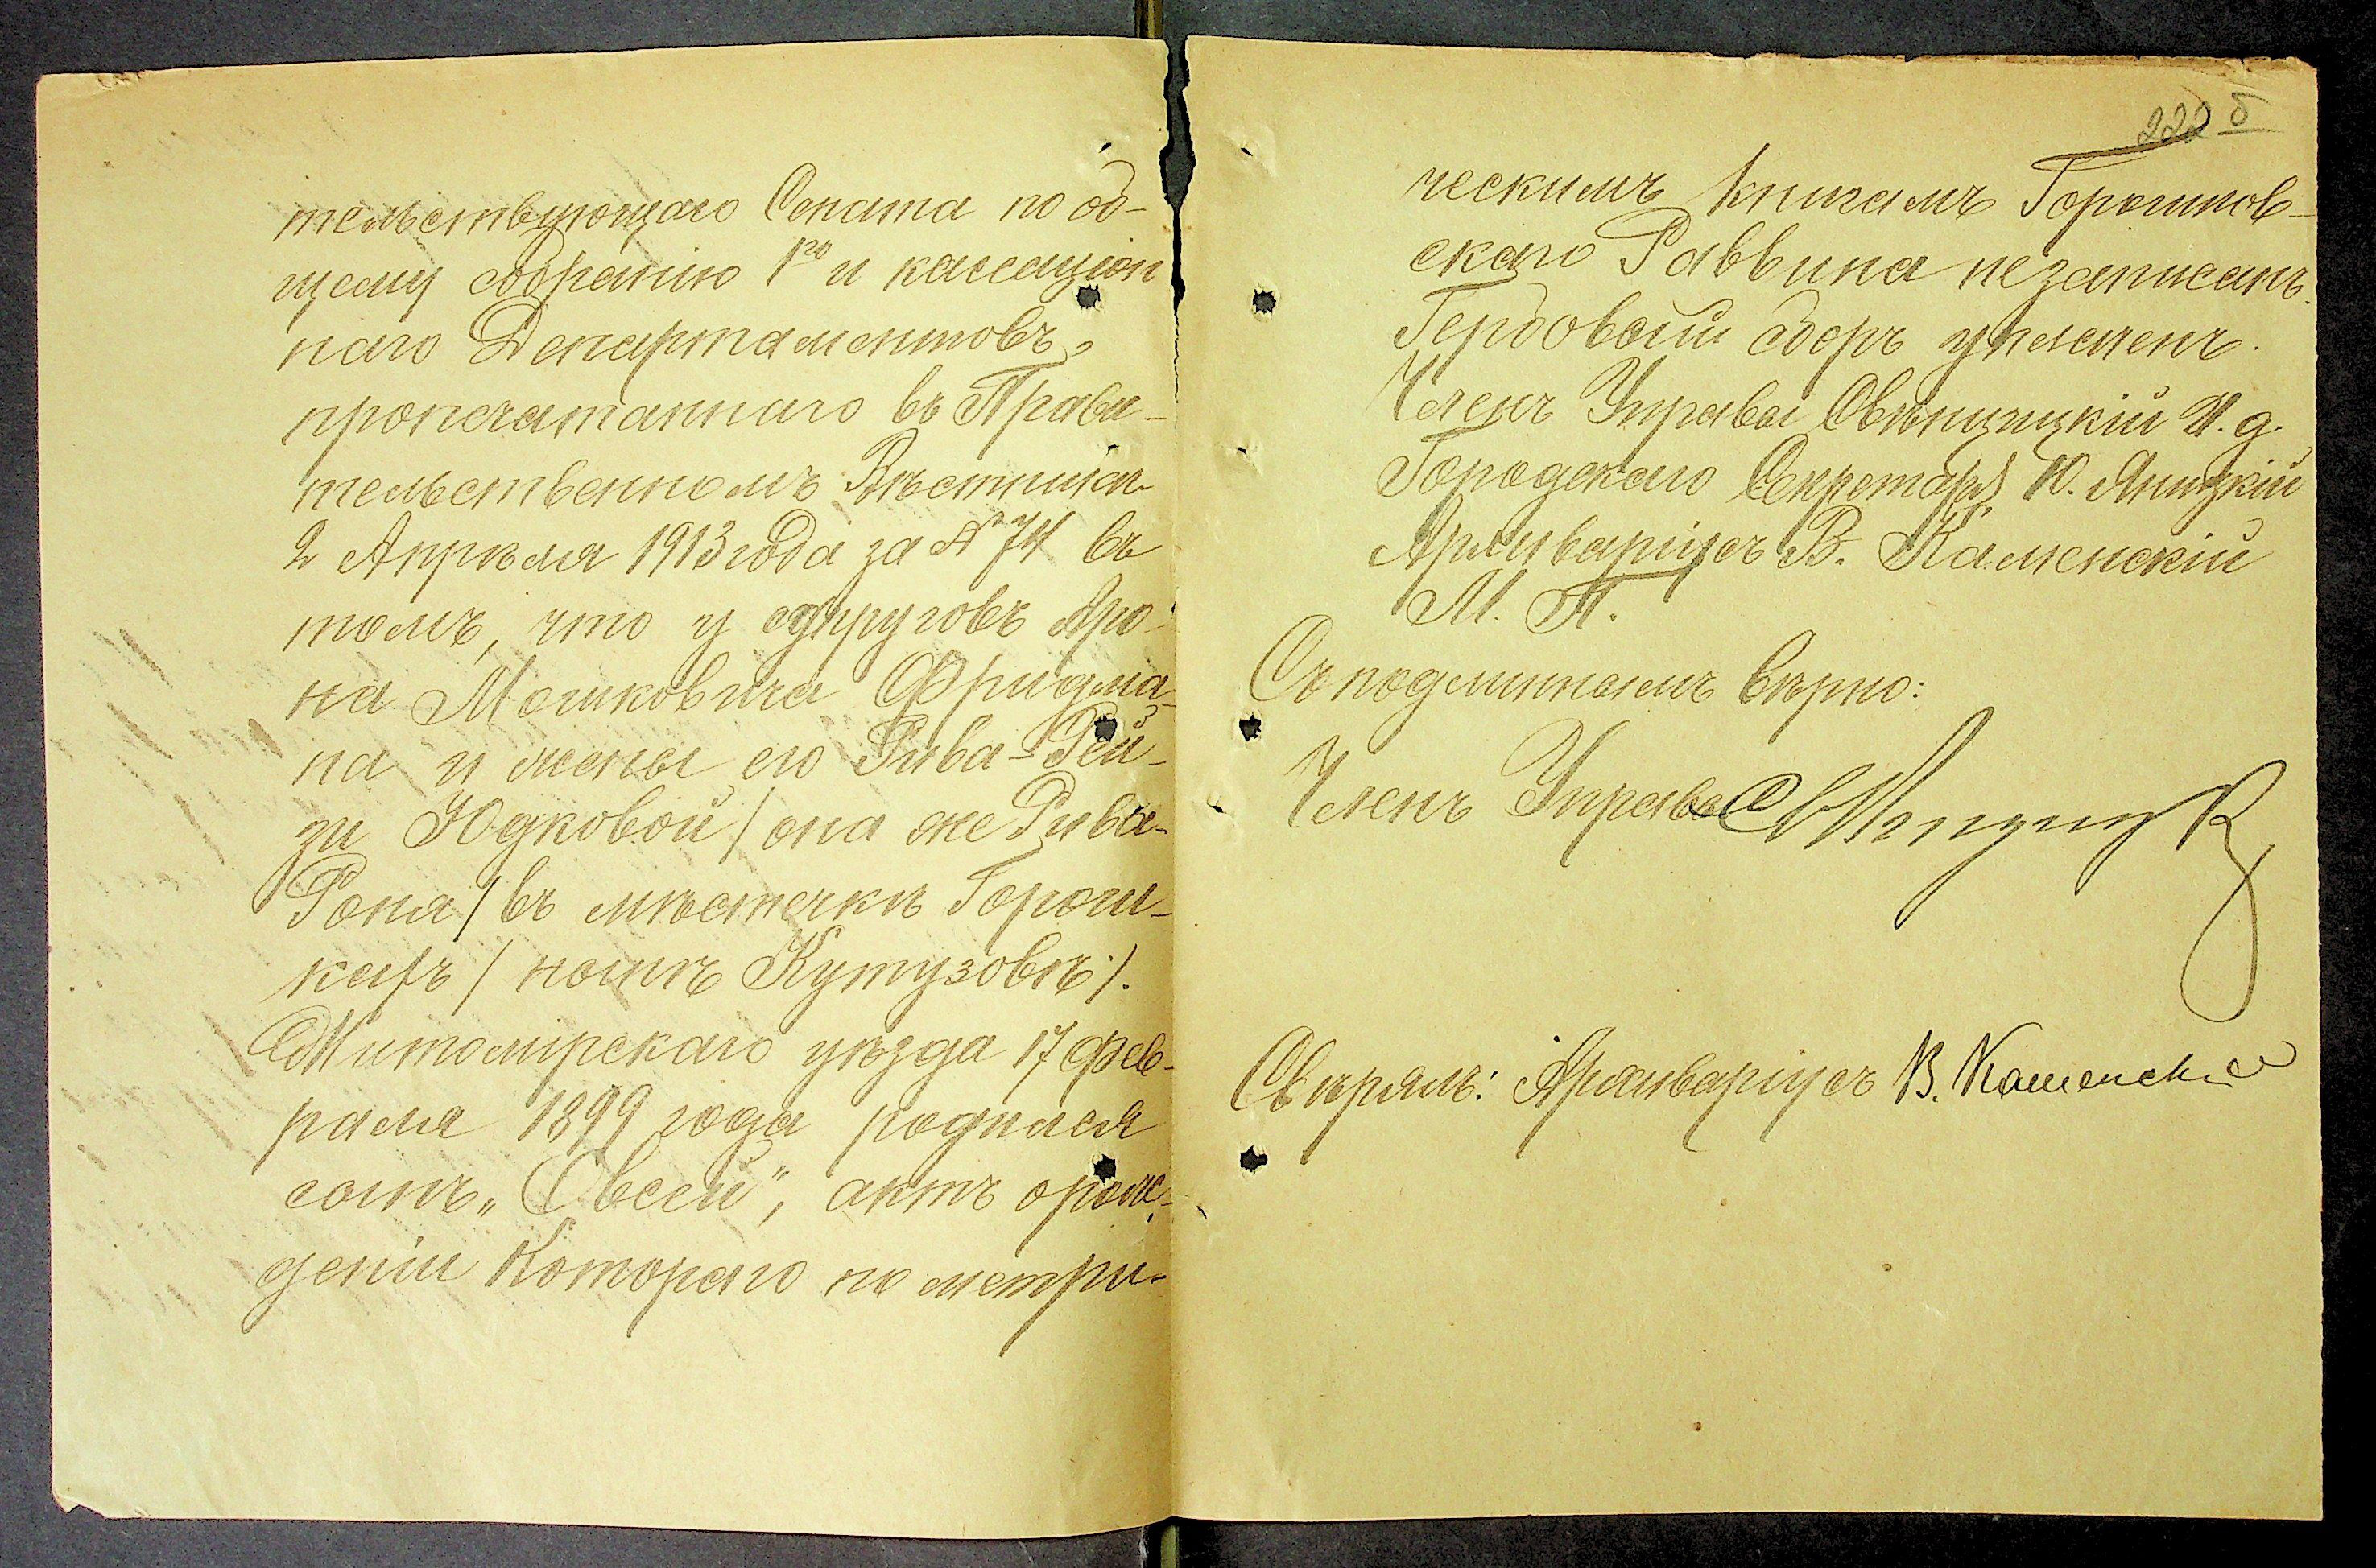 тельствующаго Сената по об-
щему собранію 1го и кассаціон
наго Департаментовъ,
пропечатаннаго въ Прави-
тельственномъ Вѣстникѣ
2 Апрѣля 1913 года за № 74 въ
томъ, что у супруговъ Аро-
на Мошковича Фридма-
на и жены его Рива-Рей-
зи Юдковой /она же Рива-
Роня/ въ мѣстечкѣ Горош-
кахъ /нынѣ Кутузовѣ/.
Житомірскаго уѣзда 17 фев-
раля 1899 года родился
сынъ „Овсей", актъ о рож-
деніи котораго по метри-
222 б
ческимъ книгамъ Горошков-
скаго Раввина незаписанъ.
Гербовый сборъ уплаченъ.
Членъ Управы Свѣнцицкій И. д.
Городского Секретаря Ю. Яницкій
Архиваріусъ В. Каменскій
М. П.
Съ подлиннымъ вѣрно:
Членъ Управы
Свѣрялъ: Архиваріусъ В. Каменскій